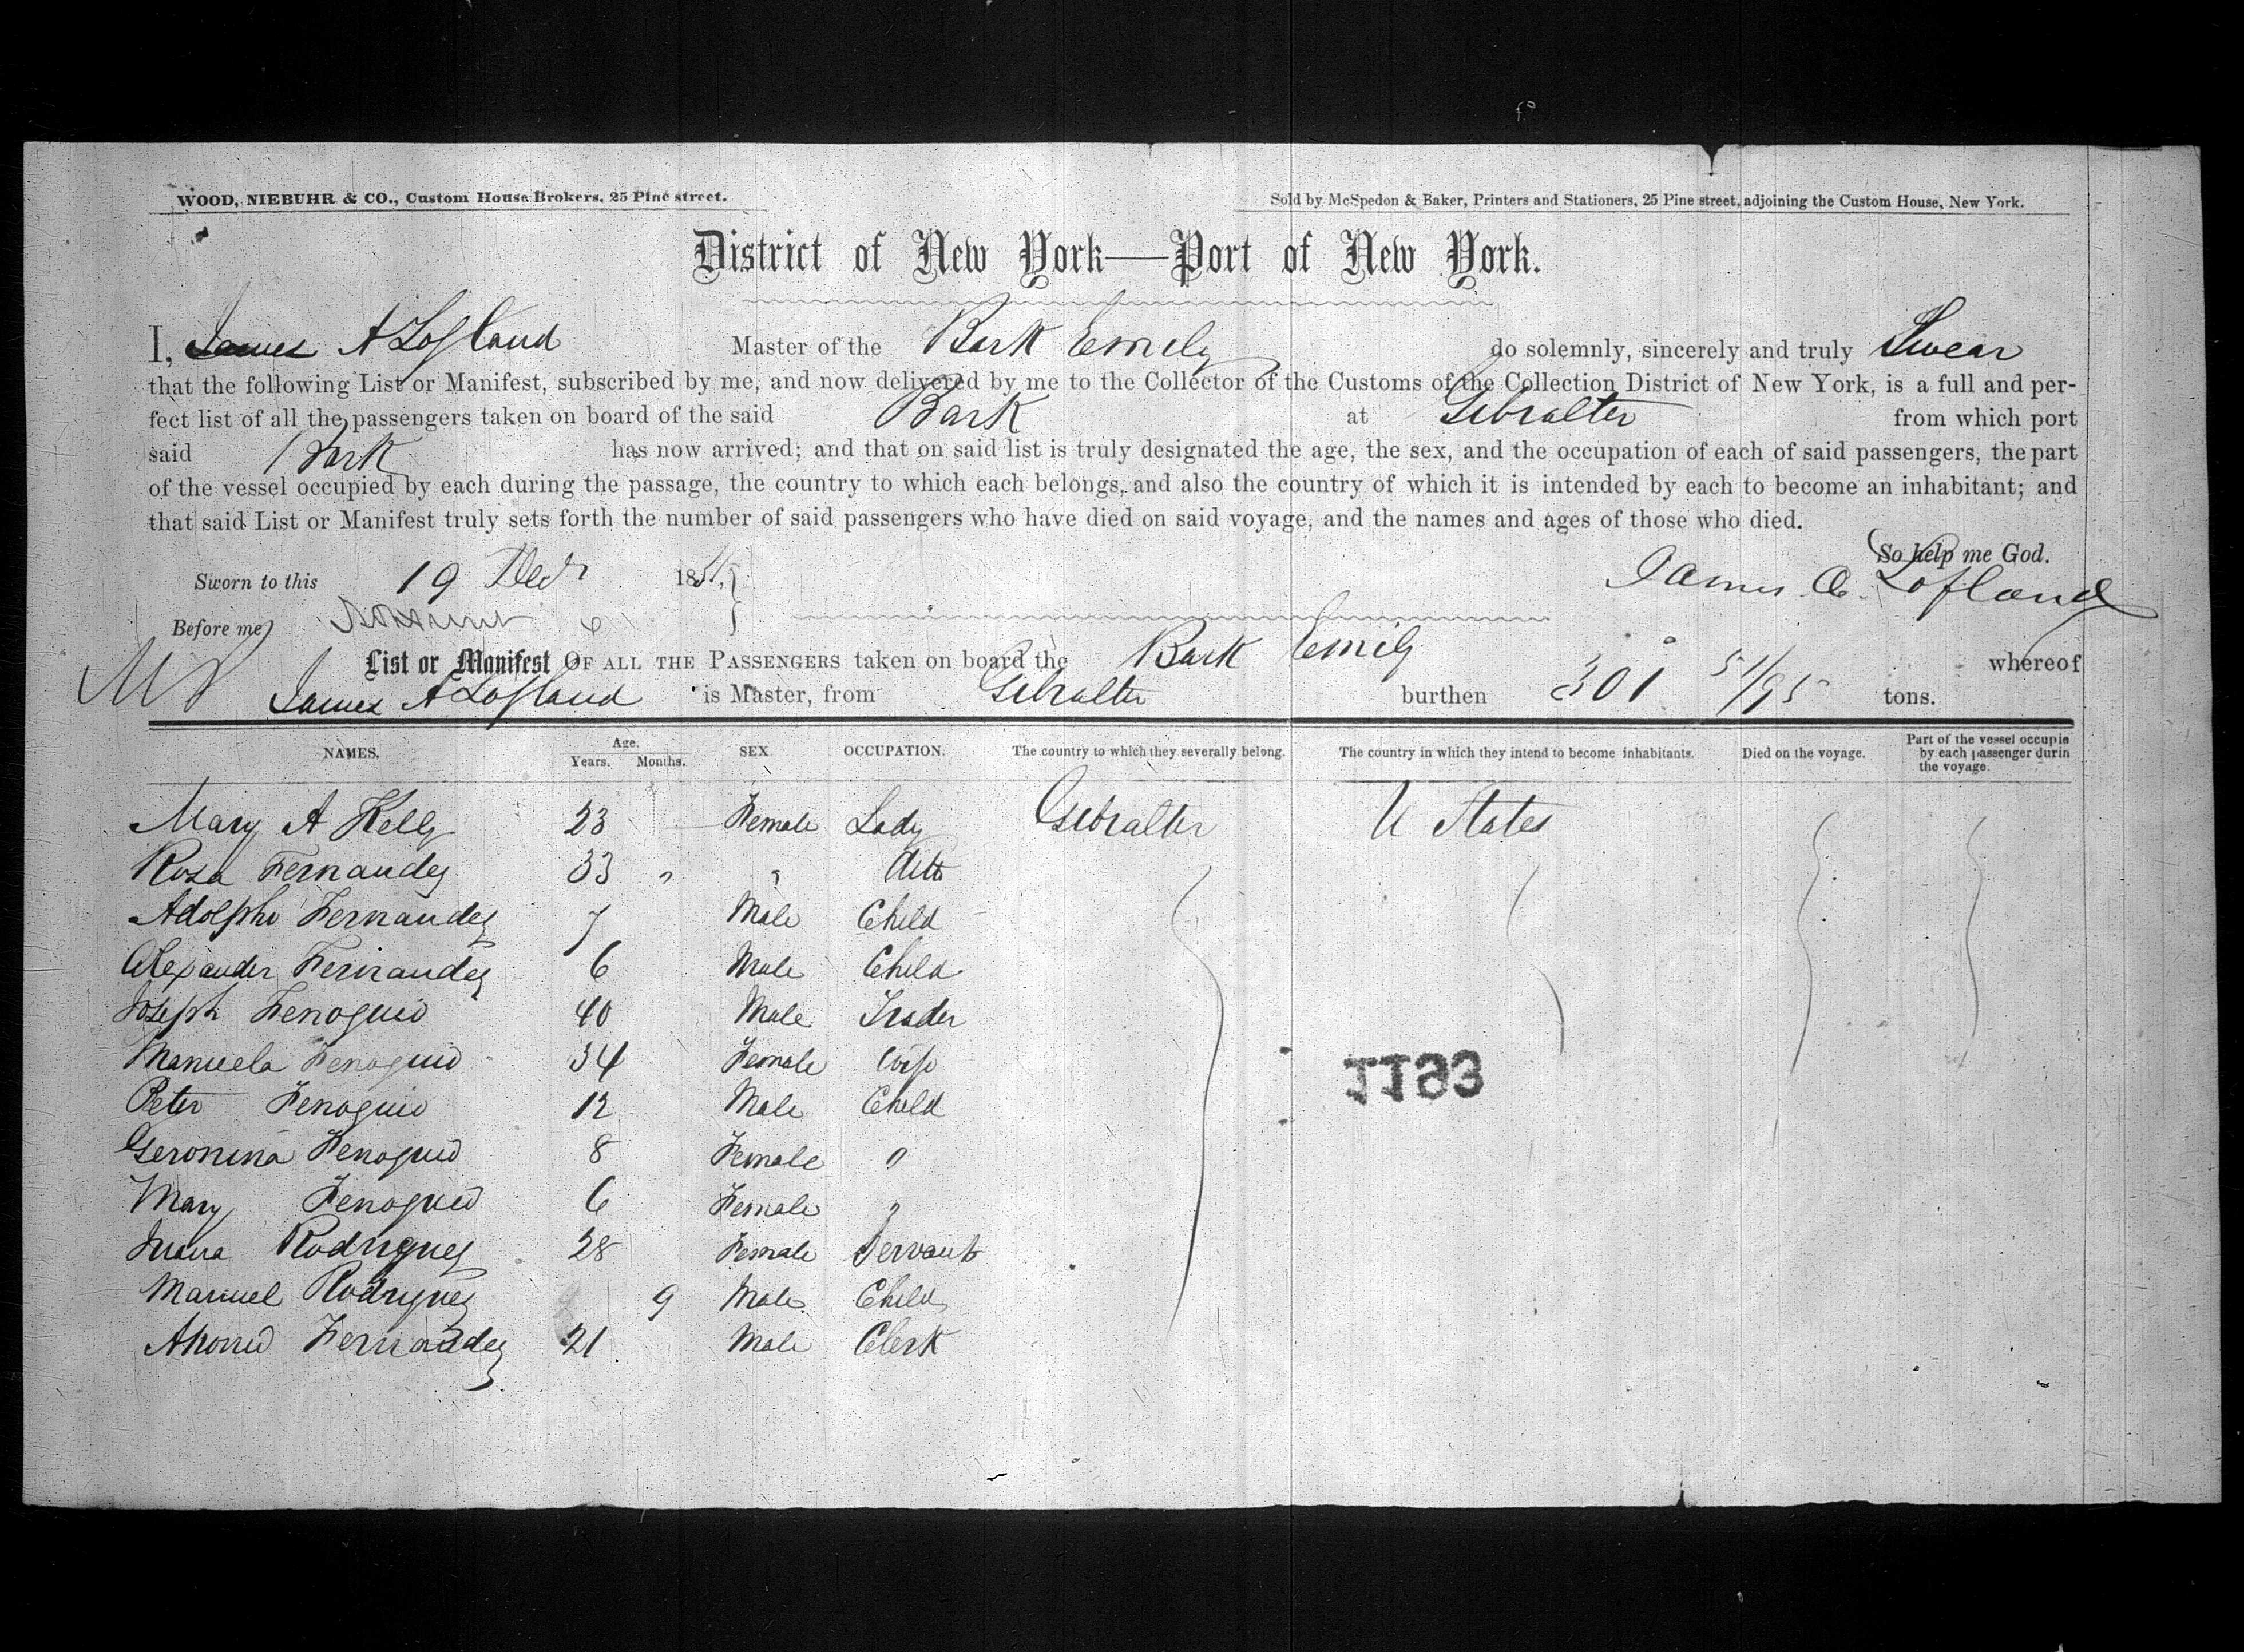 WOOD, NIEBUHR & CO., Custom House Brokers, 25 Pine street. Sold by McSpedon & Baker, Printers and Stationers, 25 Pine street, adjoining the Custom House, New York.
District of New York—Port of New York.
I, James A Lofland Master of the Bark Emily do solemnly, sincerely and truly Swear
that the following List or Manifest, subscribed by me, and now delivered by me to the Collector of the Customs of the Collection District of New York, is a full and per-
fect list of all the passengers taken on board of the said Bark at Gibralter from which port
said Bark has now arrived; and that on said list is truly designated the age, the sex, and the occupation of each of said passengers, the part
of the vessel occupied by each during the passage, the country to which each belongs, and also the country of which it is intended by each to become an inhabitant; and
that said List or Manifest truly sets forth the number of said passengers who have died on said voyage, and the names and ages of those who died.
So help me God.
Sworn to this 19 Decr 1851, James A. Lofland
Before me
List or Manifest OF ALL THE PASSENGERS taken on board the Bark Emily whereof
James A Lofland is Master, from Gibralter burthen 301 51/95 tons.
NAMES. Age. Years. Months. SEX. OCCUPATION. The country to which they severally belong. The country in which they intend to become inhabitants. Died on the voyage. Part of the vessel occupie by each passenger durin the voyage.
Mary A Kelly 23 Female Lady Gibralter U States
Rosa Fernandez 33 " " ditto
Adolpho Fernandez 7 Male Child
Alexander Fernandez 6 Male Child
Joseph Fenoguio 40 Male Trader
Manuela Fenoguio 34 Female Wife
Peter Fenoguio 12 Male Child
Geronina Fenoguio 8 Female "
Mary Fenoguio 6 Female "
Juana Rodriguez 28 Female Servant
Manuel Rodriguez 9 Male Child
Fernandez 21 Male Clerk
1193